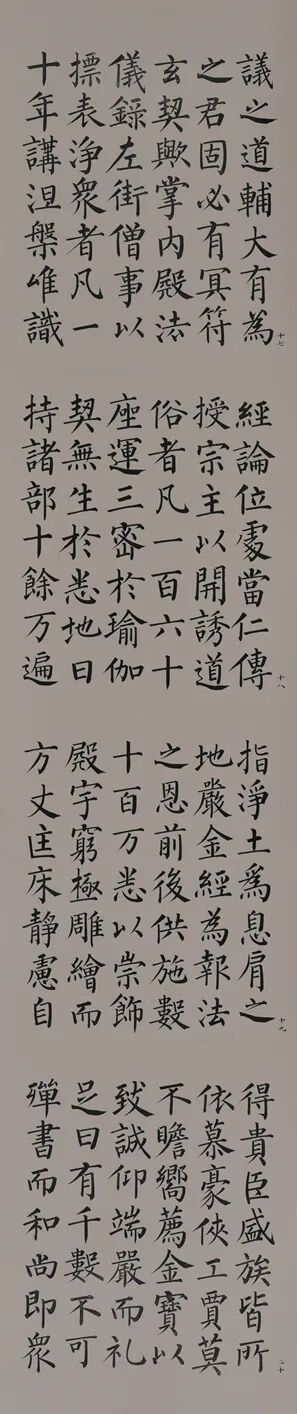 議之道輔大有為
之君固必有冥符
玄契歟掌內殿法
儀錄左街僧事以
摽表淨衆者凡一
十年講涅槃唯識
十七
經論位處當仁傳
授宗主以開誘道
俗者凡一百六十
座運三密於瑜伽
契無生於悉地日
持諸部十餘万遍
十八
指淨土爲息肩之
地嚴金經為報法
之恩前後供施數
十百万悉以崇飾
殿宇窮極雕繪而
方丈匡床靜慮自
十九
得貴臣盛族皆所
依慕豪俠工賈莫
不瞻嚮薦金寶以
致誠仰端嚴而礼
足日有千數不可
殫書而和尚即衆
二十